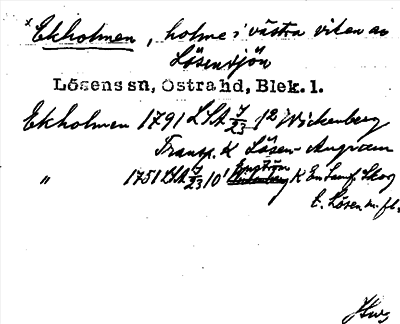 x Ekholmen, holme i västra viken av
Lösensjön
Lösens sn, Östra hd, Blek. l.
Ekholmen 1791 LSA 7/23 1² Wickenberg
Transp. K Lösen - Augerum
" 1751 LSA 7/23 10¹ K En Samf. Skog
t. Lösen m. fl.